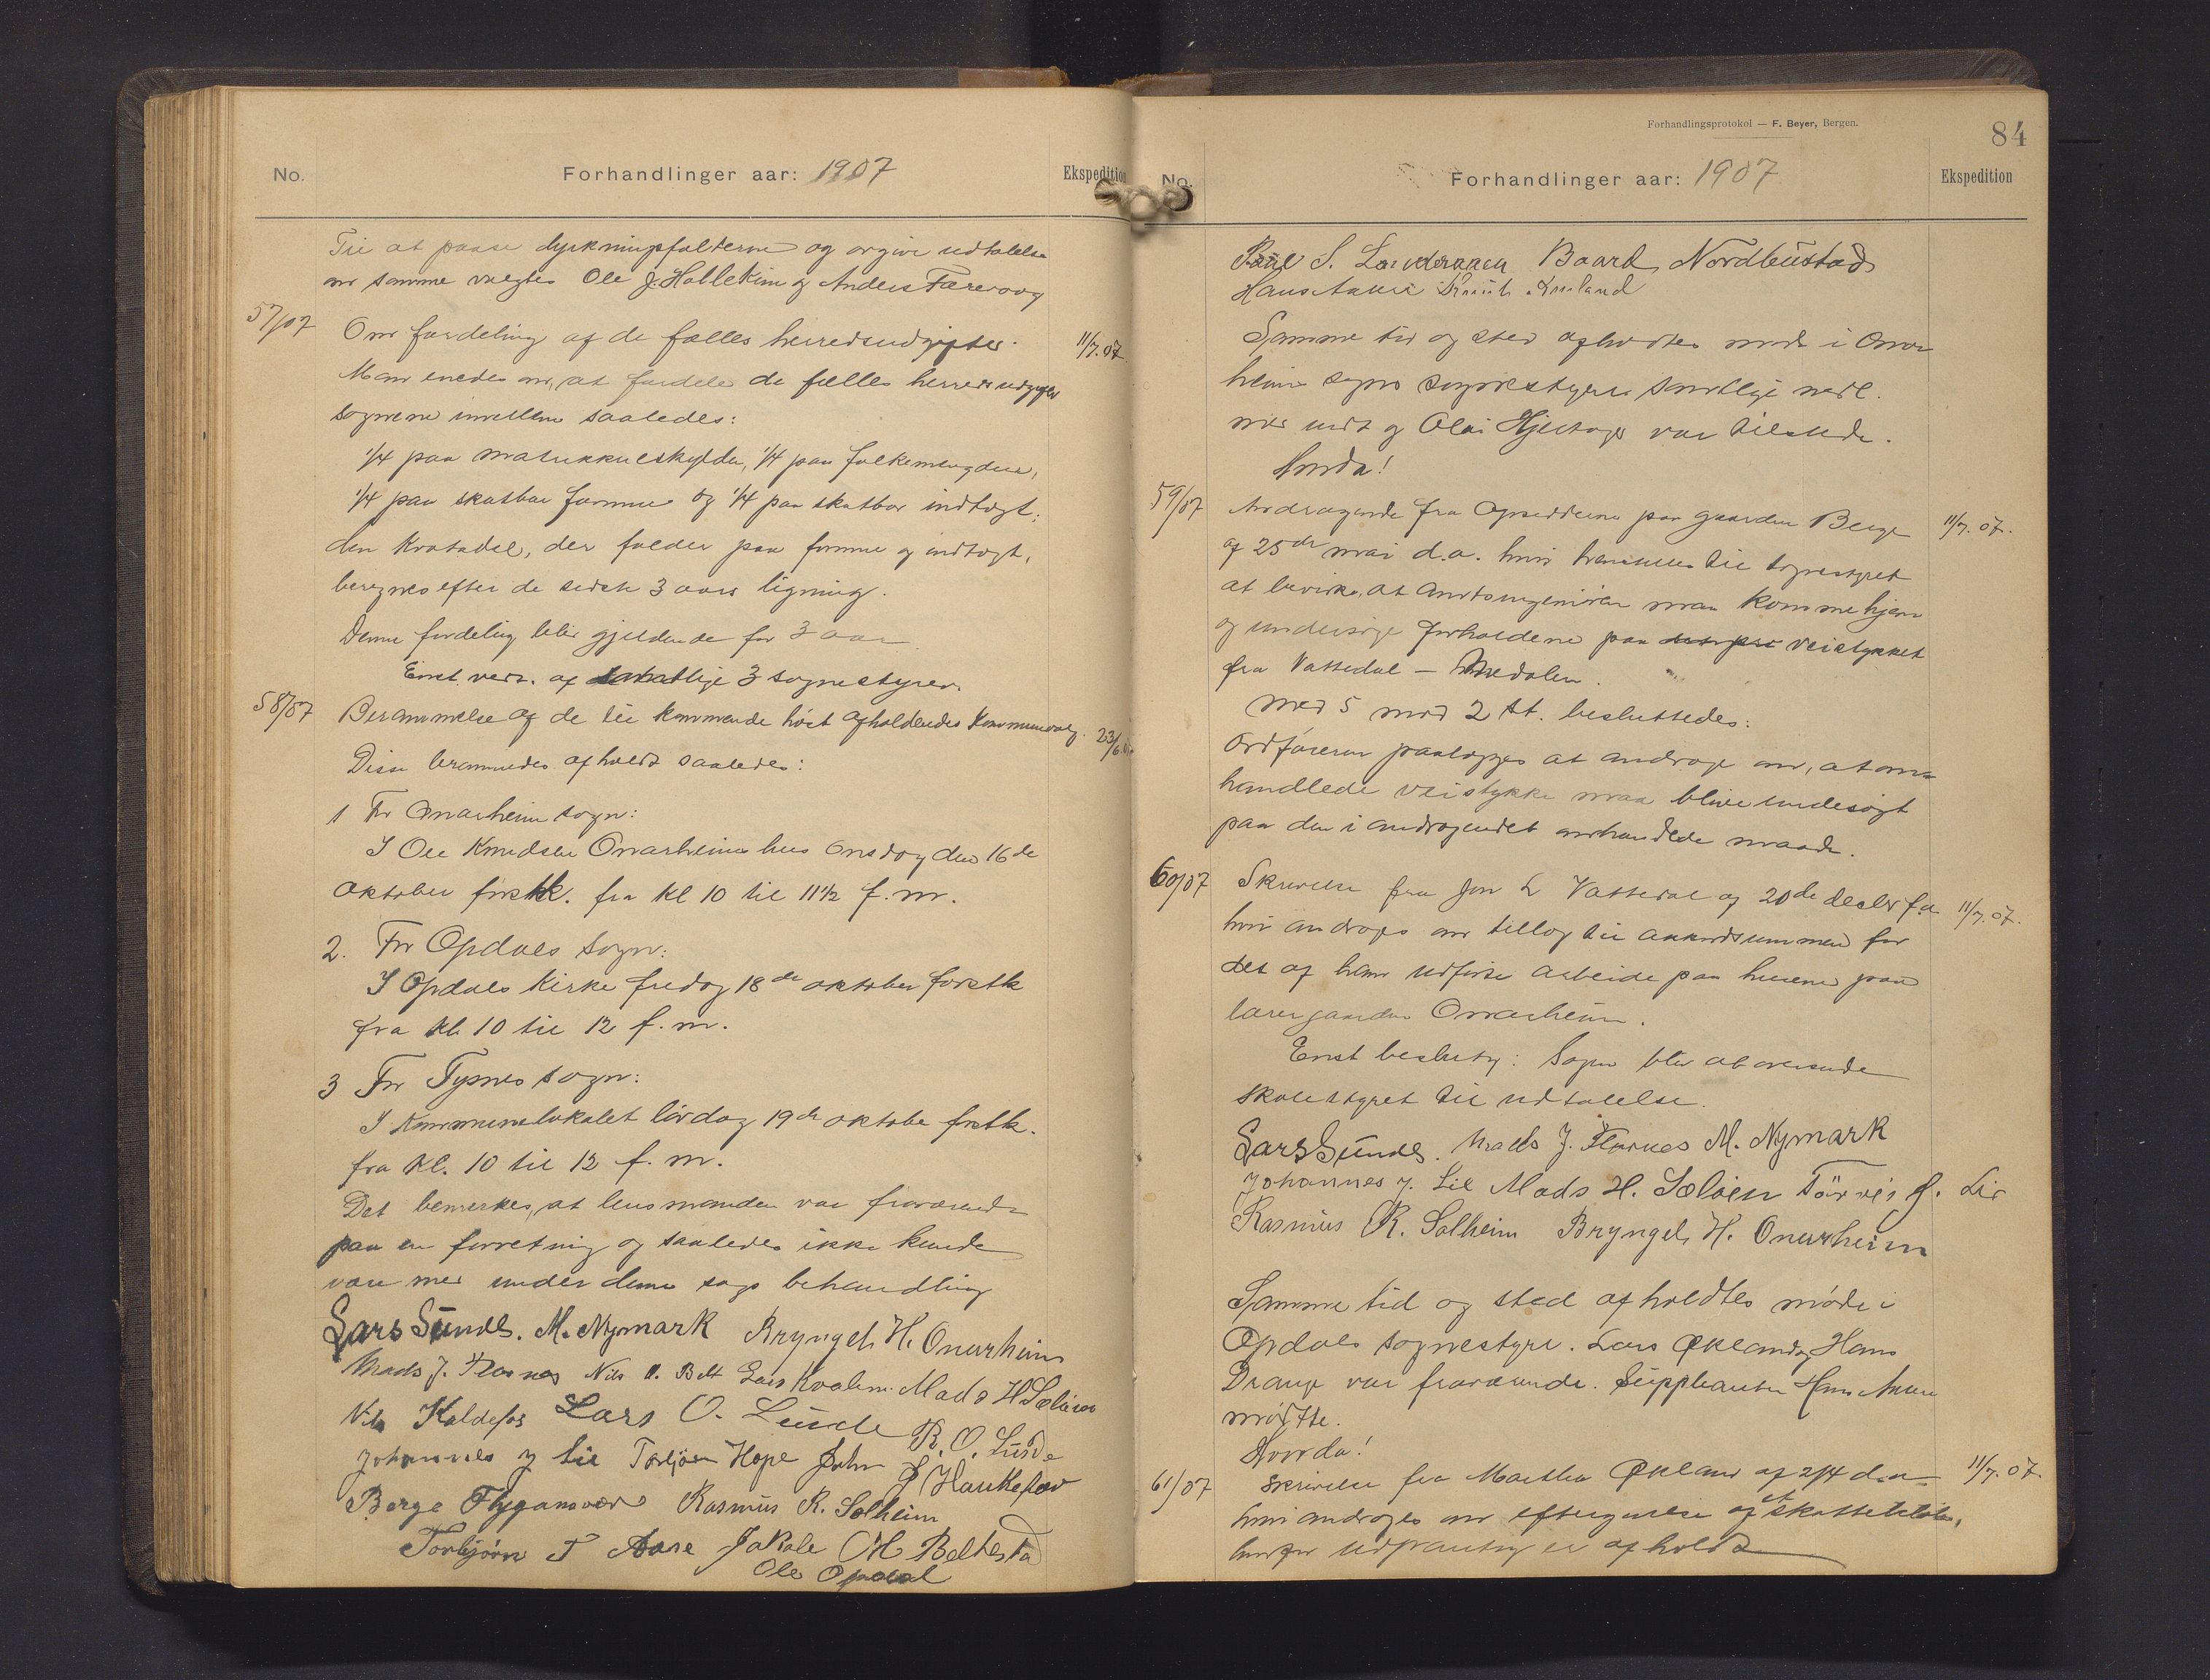 No.
Forhandlinger aar: 1907
Ekspedition
Til at paase dyrkningsfelterne og avgive udtalelse
om samme valgtes Ole J. Hallekim og Anders Færevaag
57/07
Om fordeling af de fælles herredsudgifter.
11/7.07
Man enedes om, at fordele de fælles herredsudgifter
sognene imellem saaledes:
1/4 paa matrikkulskylden, 1/4 paa folkemengden,
1/4 paa skatbar formue og 1/4 paa skatbar indtægt;
den kvotadel, der falder paa formue og indtægt,
beregnes efter de sidste 3 aars ligning.
Denne fordeling blir gjeldende for 3 aar
Enst. vedt. af samtlige 3 sognestyrer.
58/07
Berammelse af de til kommende høst afholdendes kommunevalg.
23/6.07
Disse berammedes afholdt saaledes:
1 For Onarheim sogn:
I Ole Knudsen Onarheims hus onsdag den 16de
oktober førstk. fra kl 10 til 11 1/2 f. m.
2. For Opdals sogn:
I Opdals kirke fredag 18de oktober førstk
fra kl. 10 til 12 f. m.
3 For Tysnes sogn:
I Kommunelokalet lørdag 19de oktober førstk.
fra kl. 10 til 12 f. m.
Det bemerkes, at lensmanden var fraværende
paa en forretning og saaledes ikke kunde
være med under denne sags behandling
Lars Sunde. M. Nymark Bryngel H. Onarheim
Mads J. Flornes Nils Belt Lars Kvalem. Mads H Sæløen
Nils Kaldefos Lars O. Lunde R. O. Lunde
Johannes J Lie Torbjørn Hope John J Haukefær
Børge Flygansvær Rasmus R. Solheim
Torbjørn T Aase Jakob M Beltestad
Ole Opdal
Forhandlingsprotokol — F. Beyer, Bergen.
84
No.
Forhandlinger aar: 1907
Ekspedition
Paul S. Landraaen Baard Nordbustad
Hans Amu
Samme tid og sted afholdtes møde i Onar
heim sogns sognestyre samtlige medl.
møs undt og Olai Hjertager var tilstede.
Sorda!
59/07
Andragende fra opsidderne paa gaarden Berge
11/7. 07.
af 25de mai d.a. hvori henstilles til sognestyret
at bevirke, at amtsingeniøren maa komme hjem
og undersøge forholdene paa veistykket
fra Vattedal —
Med 5 mod 2 st. besluttedes:
Ordføreren paalægges at andrage om, at om-
handlede veistykke maa blive undesøgt
paa den i andragendet omhandlede maade.
60/07
Skrivelse fra Jon L Vattedal af 20de decbr f.a.
11/7. 07.
hvori androges om tillæg til akkordsummen for
det af ham udførte arbeide paa husene paa
lærergaarden Onarheim.
Enst beslutn: Sagen blev at oversende
skolestyret til udtalelse.
Lars Sunde. Mads J. Flornes M. Nymark
Johannes J. Lie Mads H. Sæløen Torvis J. Lie
Rasmus R. Solheim Bryngel H. Onarheim
Samme tid og sted afholdtes møde i
Opdals sognestyre. Lars Økland og Hans
Drange var fraværende. Suppleanten Hans Amu
mødte.
Hvorda!
61/07
Skrivelse fra Martha Økland af 2/4 d.a
11/7. 07.
hvori androges om eftergivelse af et skattebeløb,
hvorfor udpantning er afholdt